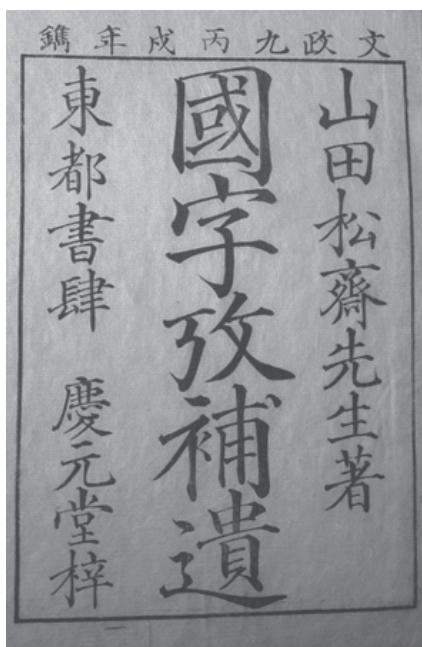 文政九丙戌年鐫
山田松齋先生著
國字攷補遺
東都書肆　慶元堂梓